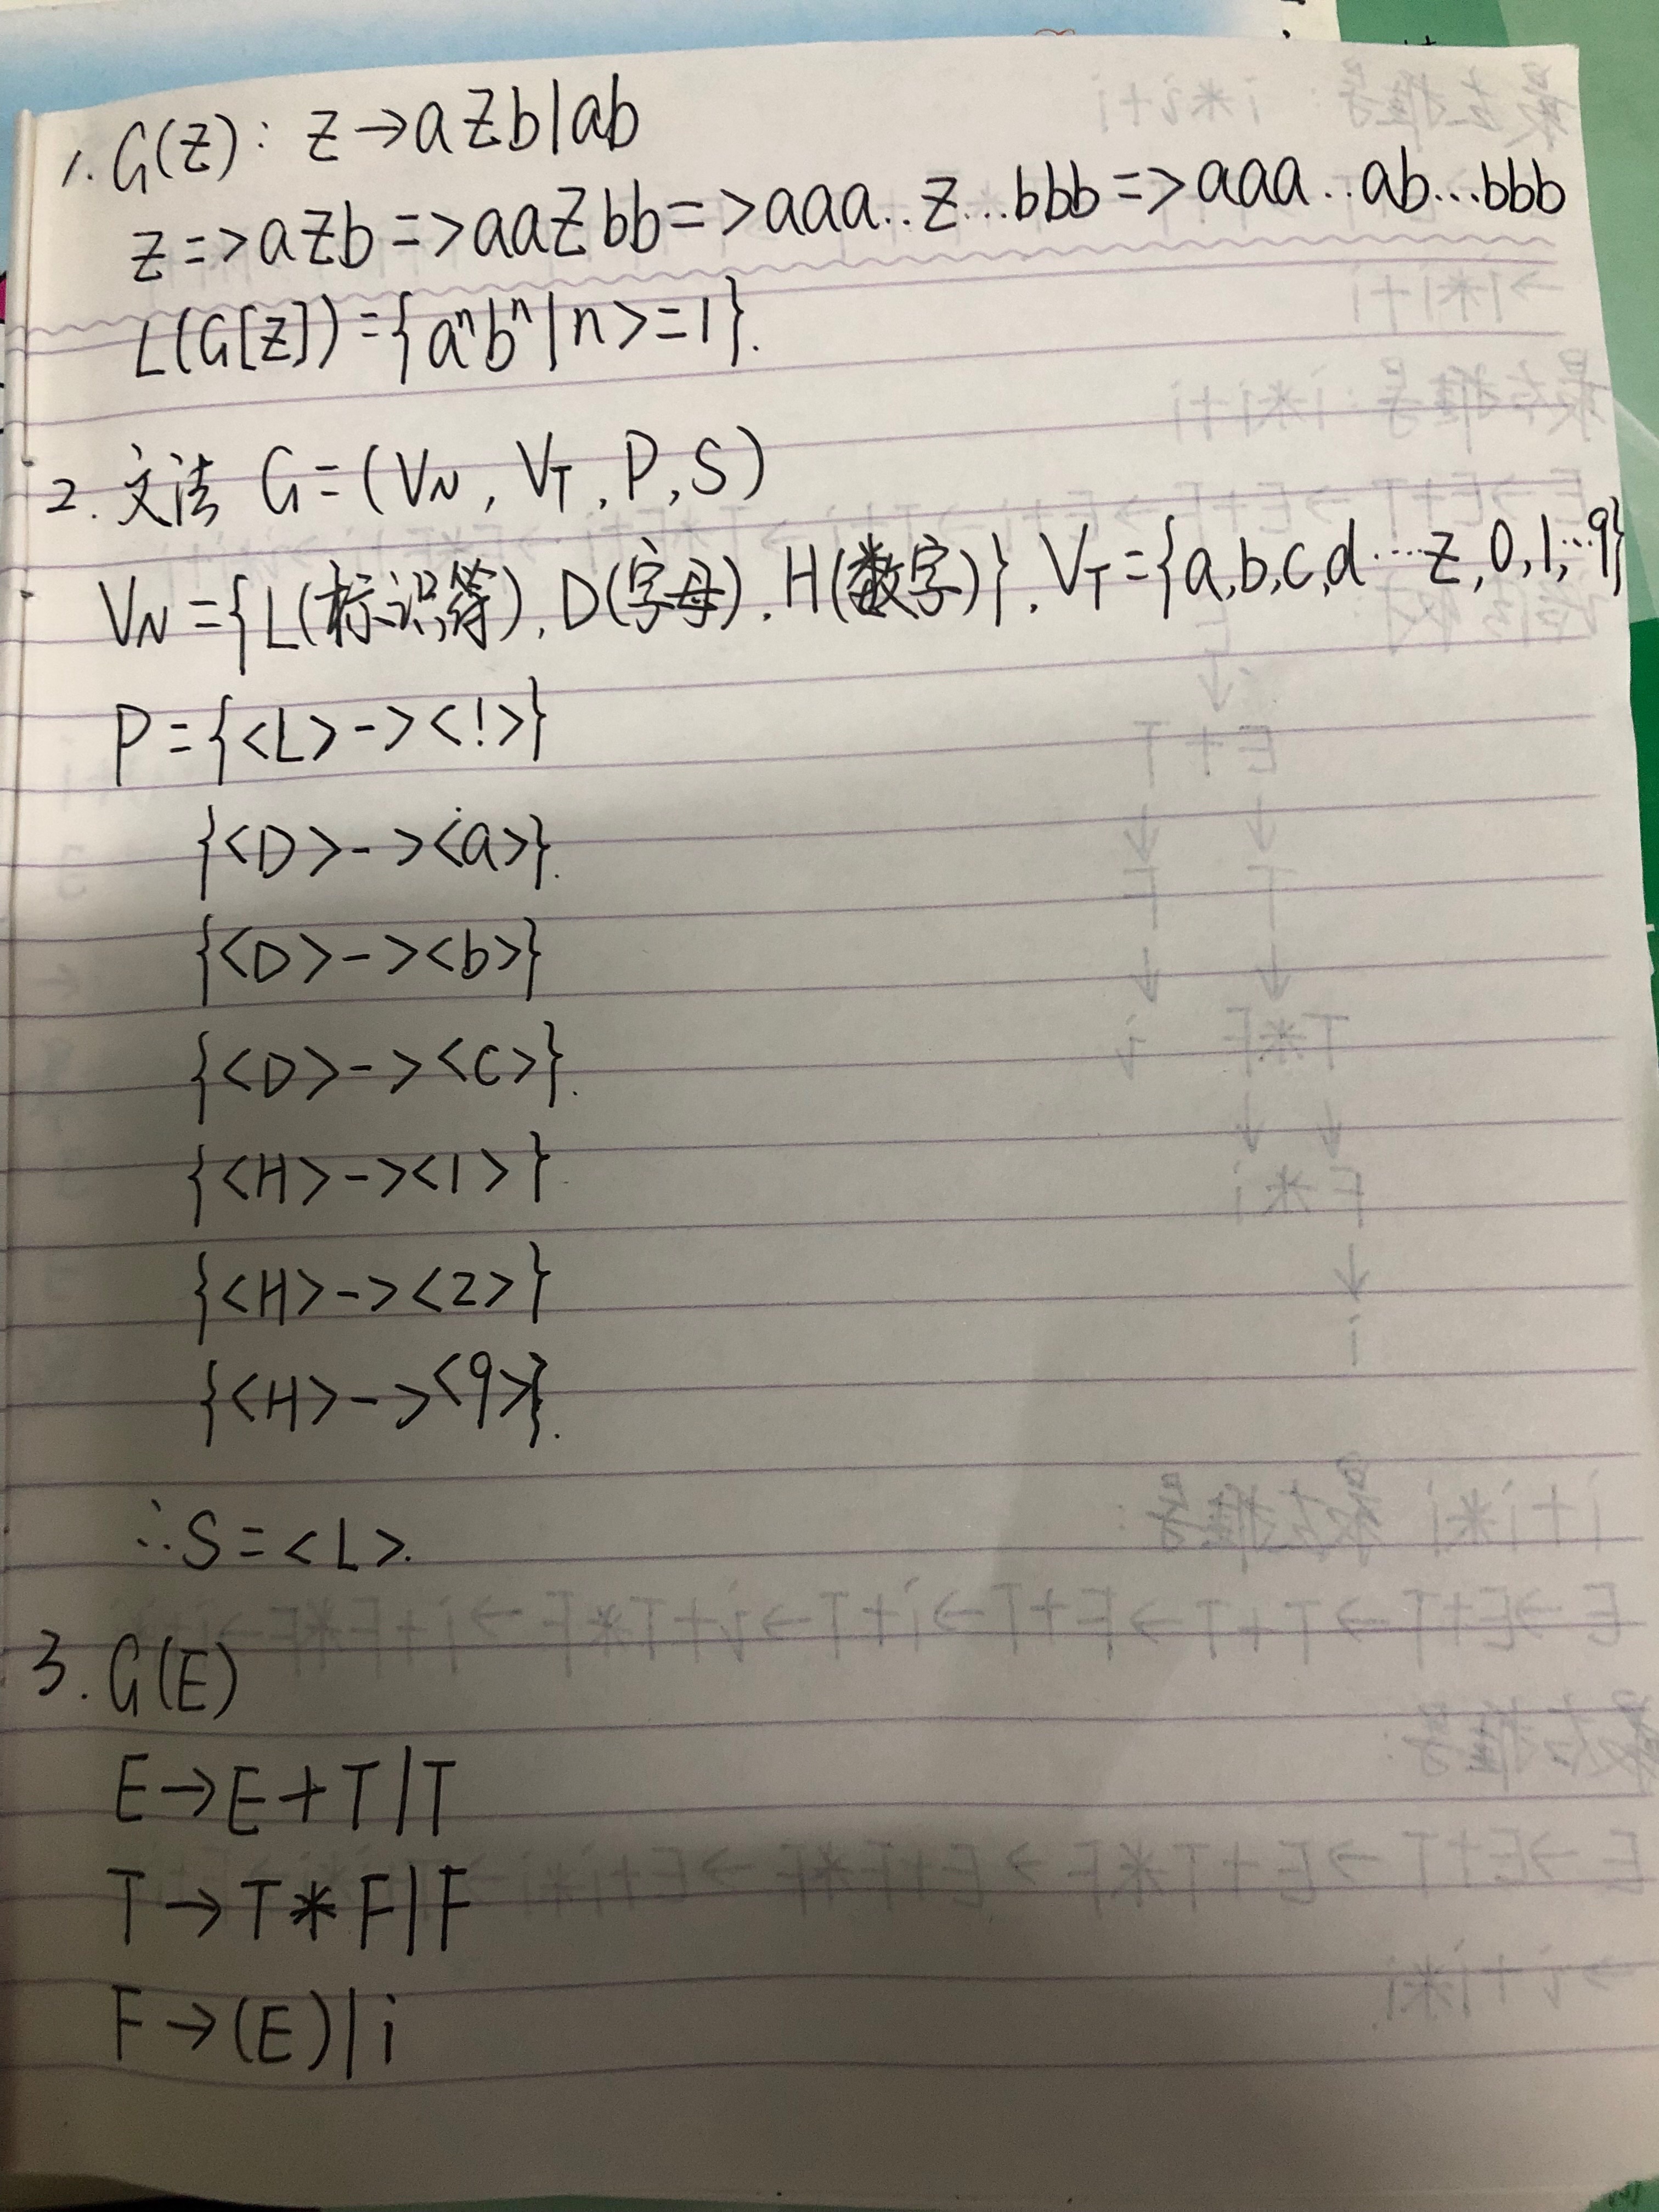 1. G(Z): Z→aZb|ab
Z=>aZb=>aaZbb=>aaa..Z...bbb=>aaa..ab...bbb
L(G[Z])={aⁿbⁿ|n>=1}.
2. 文法 G=(VN, VT, P, S)
VN={L(标识符), D(字母), H(数字)}, VT={a,b,c,d...z,0,1,...9}
P={<L>-><!>}
{<D>-><a>}.
{<D>-><b>}
{<D>-><c>}.
{<H>-><1>}
{<H>-><2>}
{<H>-><9>}.
∴S=<L>.
3. G(E)
E→E+T|T
T→T*F|F
F→(E)|i